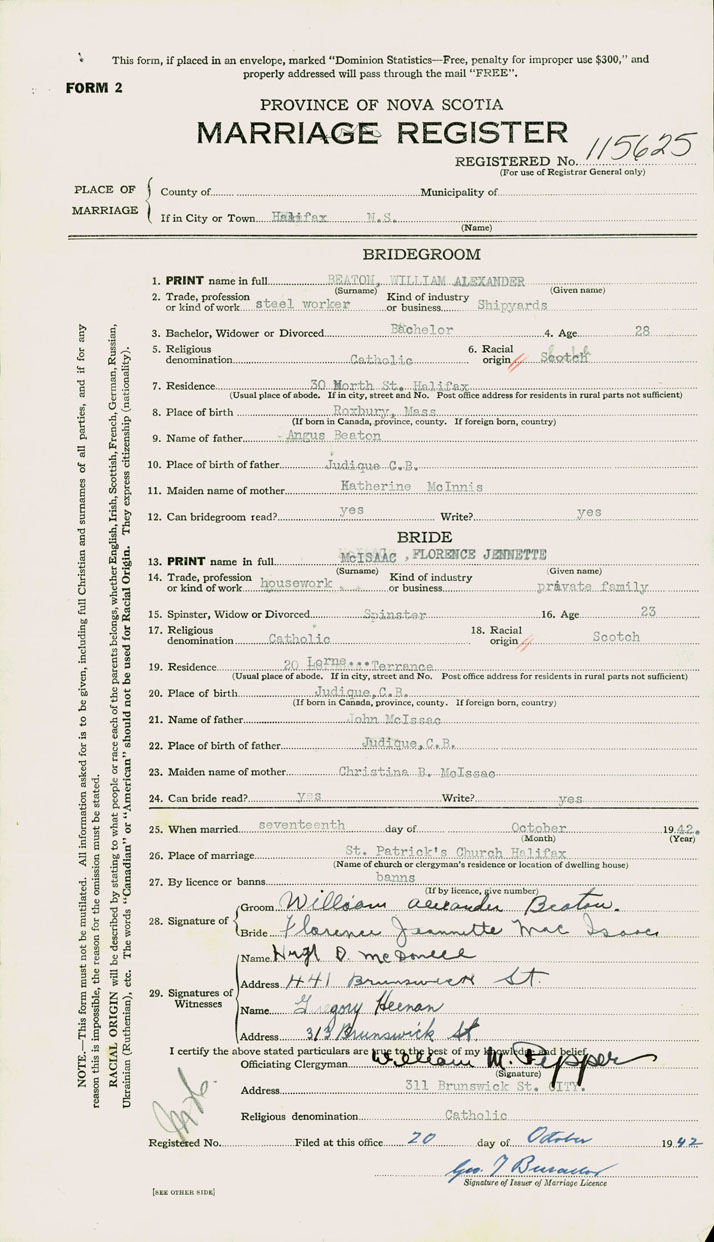 This form, if placed in an envelope, marked "Dominion Statistics—Free, penalty for improper use $300," and
properly addressed will pass through the mail "FREE".
FORM 2
PROVINCE OF NOVA SCOTIA
MARRIAGE REGISTER
REGISTERED No. 115625
(For use of Registrar General only)
PLACE OF MARRIAGE
County of........ Municipality of
If in City or Town Halifax N.S.
(Name)
BRIDEGROOM
1. PRINT name in full BEATON, WILLIAM ALEXANDER
(Surname) (Given name)
2. Trade, profession or kind of work steel worker Kind of industry or business Shipyards
3. Bachelor, Widower or Divorced Bachelor 4. Age 28
5. Religious denomination Catholic 6. Racial origin Scotch
7. Residence 30 North St. Halifax
(Usual place of abode. If in city, street and No. Post office address for residents in rural parts not sufficient)
8. Place of birth Roxbury, Mass
(If born in Canada, province, county. If foreign born, country)
9. Name of father Angus Beaton
10. Place of birth of father Judique C.B.
11. Maiden name of mother Katherine McInnis
12. Can bridegroom read? yes Write? yes
BRIDE
13. PRINT name in full McISAAC, FLORENCE JENNETTE
(Surname) (Given name)
14. Trade, profession or kind of work housework Kind of industry or business private family
15. Spinster, Widow or Divorced Spinster 16. Age 23
17. Religious denomination Catholic 18. Racial origin Scotch
19. Residence 20 Lorne...Terrance
(Usual place of abode. If in city, street and No. Post office address for residents in rural parts not sufficient)
20. Place of birth Judique,C.B.
(If born in Canada, province, county. If foreign born, country)
21. Name of father John McIssac
22. Place of birth of father Judique,C.B.
23. Maiden name of mother Christina B. McIssac
24. Can bride read? yes Write? yes
25. When married seventeenth day of October 1942.
(Month) (Year)
26. Place of marriage St. Patrick's Church Halifax
(Name of church or clergyman's residence or location of dwelling house)
27. By licence or banns banns
(If by licence, give number)
28. Signature of
Groom William Alexander Beaton.
Bride Florence Jeannette Mac Isaac
29. Signatures of Witnesses
Name Hugh D. McDonell
Address 441 Brunswick St.
Name Gregory Heenan
Address 313 Brunswick St
I certify the above stated particulars are true to the best of my knowledge and belief.
Officiating Clergyman William M. Pepper
(Signature)
Address 311 Brunswick St. CITY.
Religious denomination Catholic
Registered No. Filed at this office 20 day of October 1942
Geo. T
Signature of Issuer of Marriage Licence
[SEE OTHER SIDE]
NOTE.—This form must not be mutilated. All information asked for is to be given, including full Christian and surnames of all parties, and if for any
reason this is impossible, the reason for the omission must be stated.
RACIAL ORIGIN will be described by stating to what people or race each of the parents belongs, whether English, Irish, Scottish, French, German, Russian,
Ukrainian (Ruthenian), etc. The words "Canadian" or "American" should not be used for Racial Origin. They express citizenship (nationality).